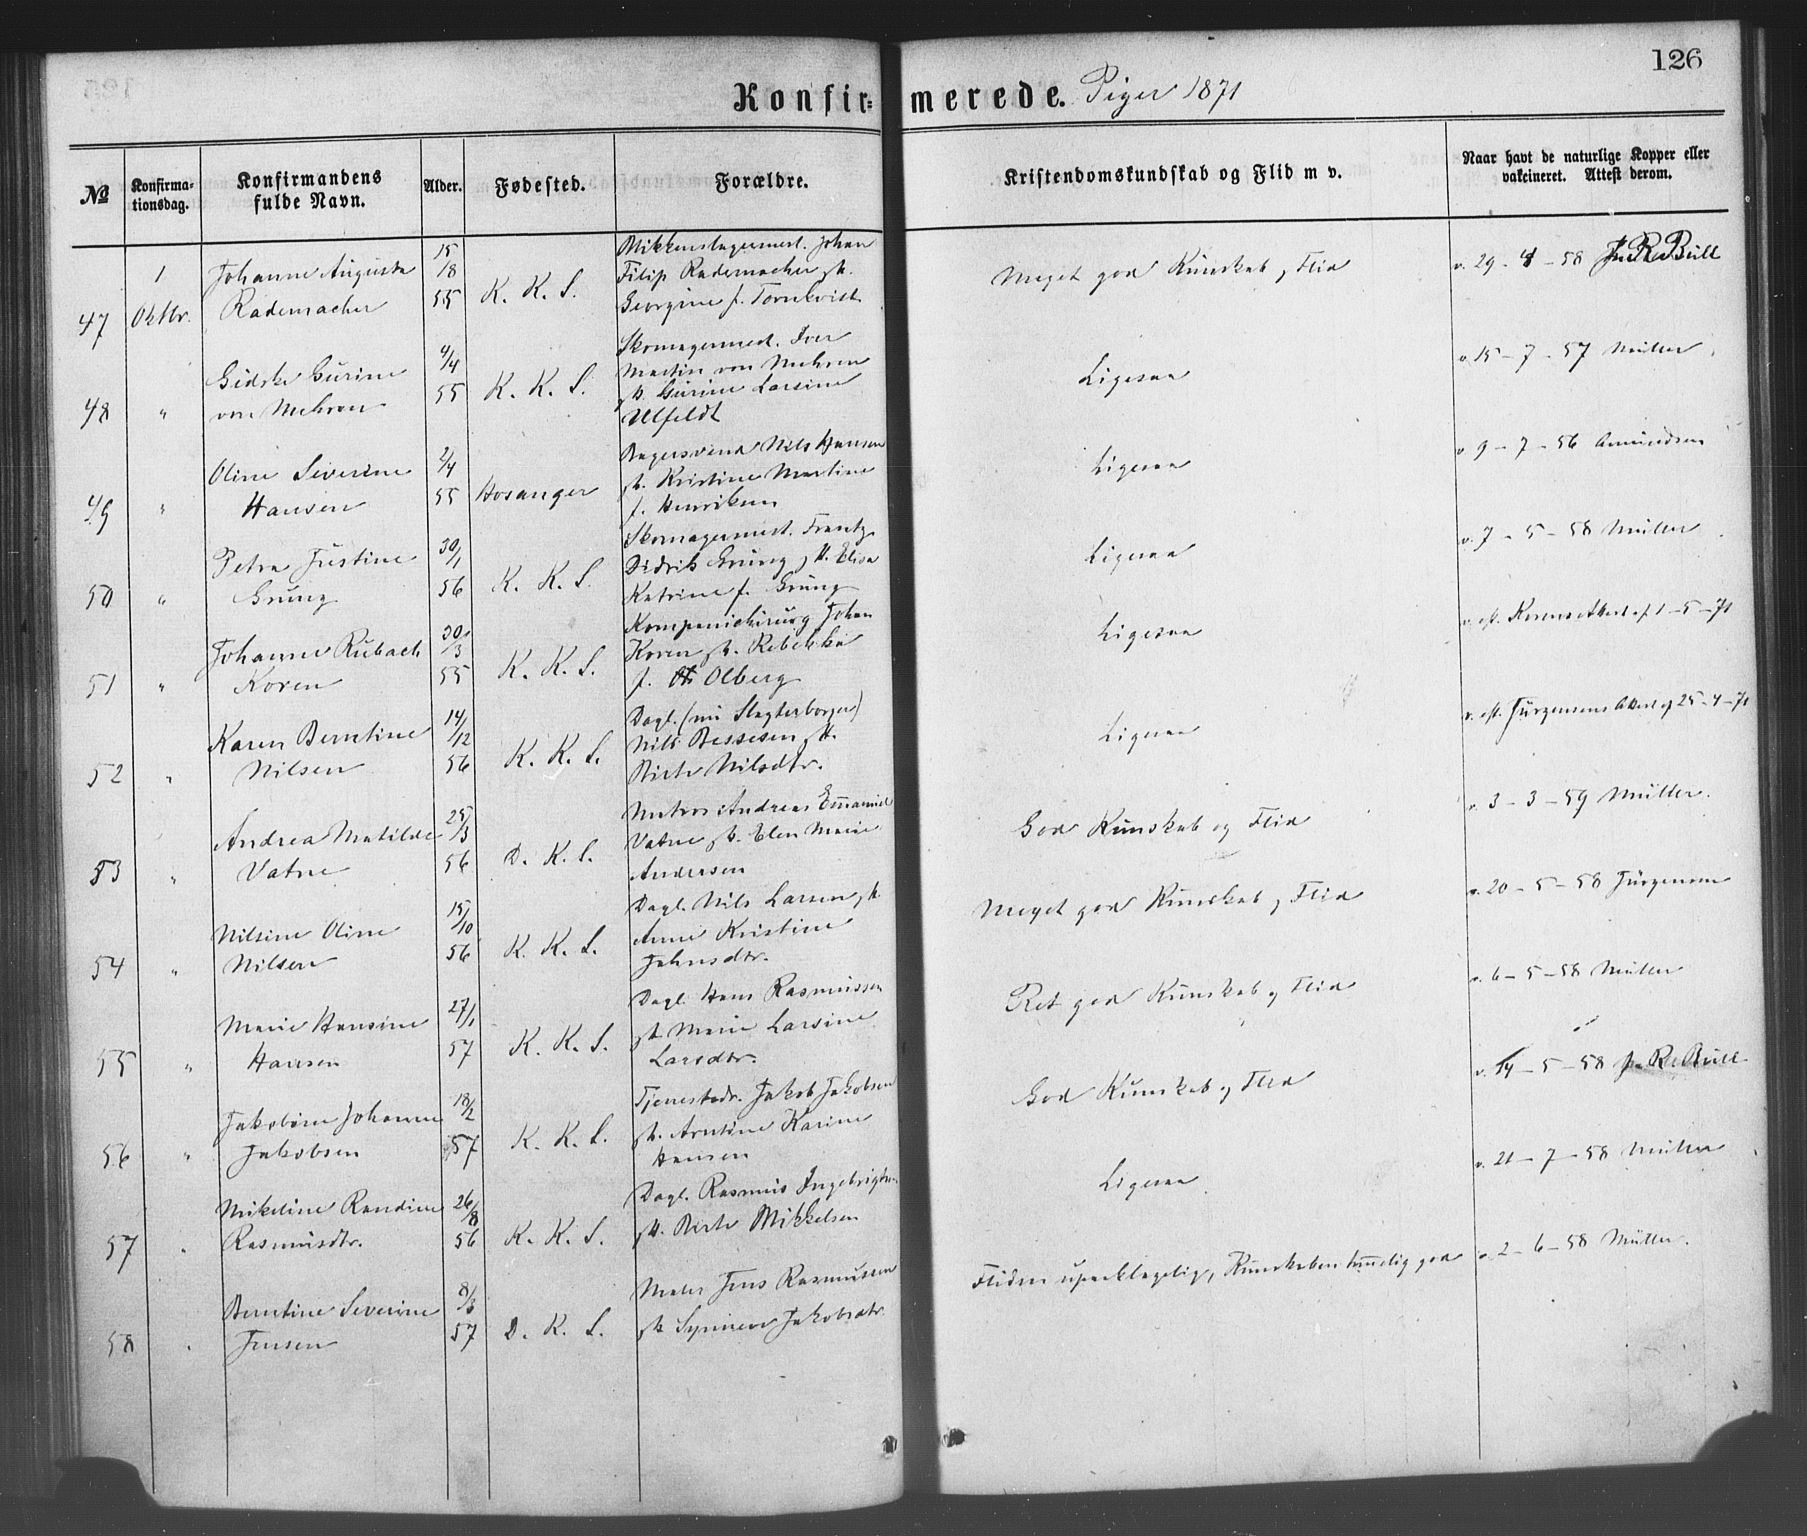 126
Konfirmerede. Piger 1871
No
Konfirmationsdag.
Konfirmandens fulde Navn.
Alder.
Fødested.
Forældre.
Kristendomskundskab og Flid m v.
Naar havt de naturlige Kopper eller vakcineret. Attest derom.
47 1 Oktbr. Johanne Augusta Rademacher 15/8 55 K. K. S. Johan Filip Rademacher, h. Georgine f. Tornkvist Meget god Kunskab, Flid v. 29-4-58 Bull
48 " Gidske Gurine von Mehren 4/4 55 K. K. S. Skomagermest. Iver Martin von Mehren h. Gurine Larsine Ulfeldt Ligesaa v. 15-7-57 Müller
49 " Oline Severine Hansen 2/4 55 Hosanger Bagersvend Nils Hansen h. Kristine Martine f. Henriksen Ligesaa v. 9-7-56 Amundsen
50 " Petra Justine Grung 30/1 56 K. K. S. Skomagermest. Frantz Didrik Grung, h. Elisa Katrine f. Grung Ligesaa v. 7-5-58 Müller
51 " Johanne Rubach Koren 30/3 55 K. K. S. Kompanichirurg Johan Koren, h. Rebekka f. Olberg Ligesaa v. eft. Korens Attest af 1-5-71
52 " Karen Berntine Nilsen 14/12 56 K. K. S. Dagl. (nu Slagterborger) Nils Bessesen, h. Birte Nilsdtr. Ligesaa v. eft. Jürgensens Attest af 25-4-71
53 " Andrea Matilde Vatne 25/3 56 D. K. S. Matros Andreas Emanuel Vatne, h. Elen Marie Andersen God Kunskab og Flid v. 3-3-59 Müller.
54 " Nilsine Oline Nilsen 15/10 56 K. K. S. Dagl. Nils Larsen, h. Anne Kristine Johnsdtr. Meget god Kunskab, Flid v. 20-5-58 Jürgensen
55 " Marie Hansine Hansen 27/1 57 K. K. S. Dagl. Hans Rasmussen h. Marie Larsine Larsdtr. Ret god Kunskab og Flid v. 6-5-58 Müller
56 " Jakobine Johanne Jakobsen 18/2 57 K. K. S. Tjenestedr. Jakob Jakobsen h. Arntine Karine Hansen God Kunskab og Flid v. 14-5-58 Bull
57 " Mikeline Randine Rasmusdtr. 26/8 56 K. K. S. Dagl. Rasmus Ingebrigtsen h. Birte Mikkelsen Ligesaa v. 21-7-58 Müller
58 " Berntine Severine Jensen 8/3 57 D. K. S. Maler Jens Rasmussen h. Synneve Jakobsdtr. Fliden upaaklagelig, Kunskaben temelig god v. 2-6-58 Müller.